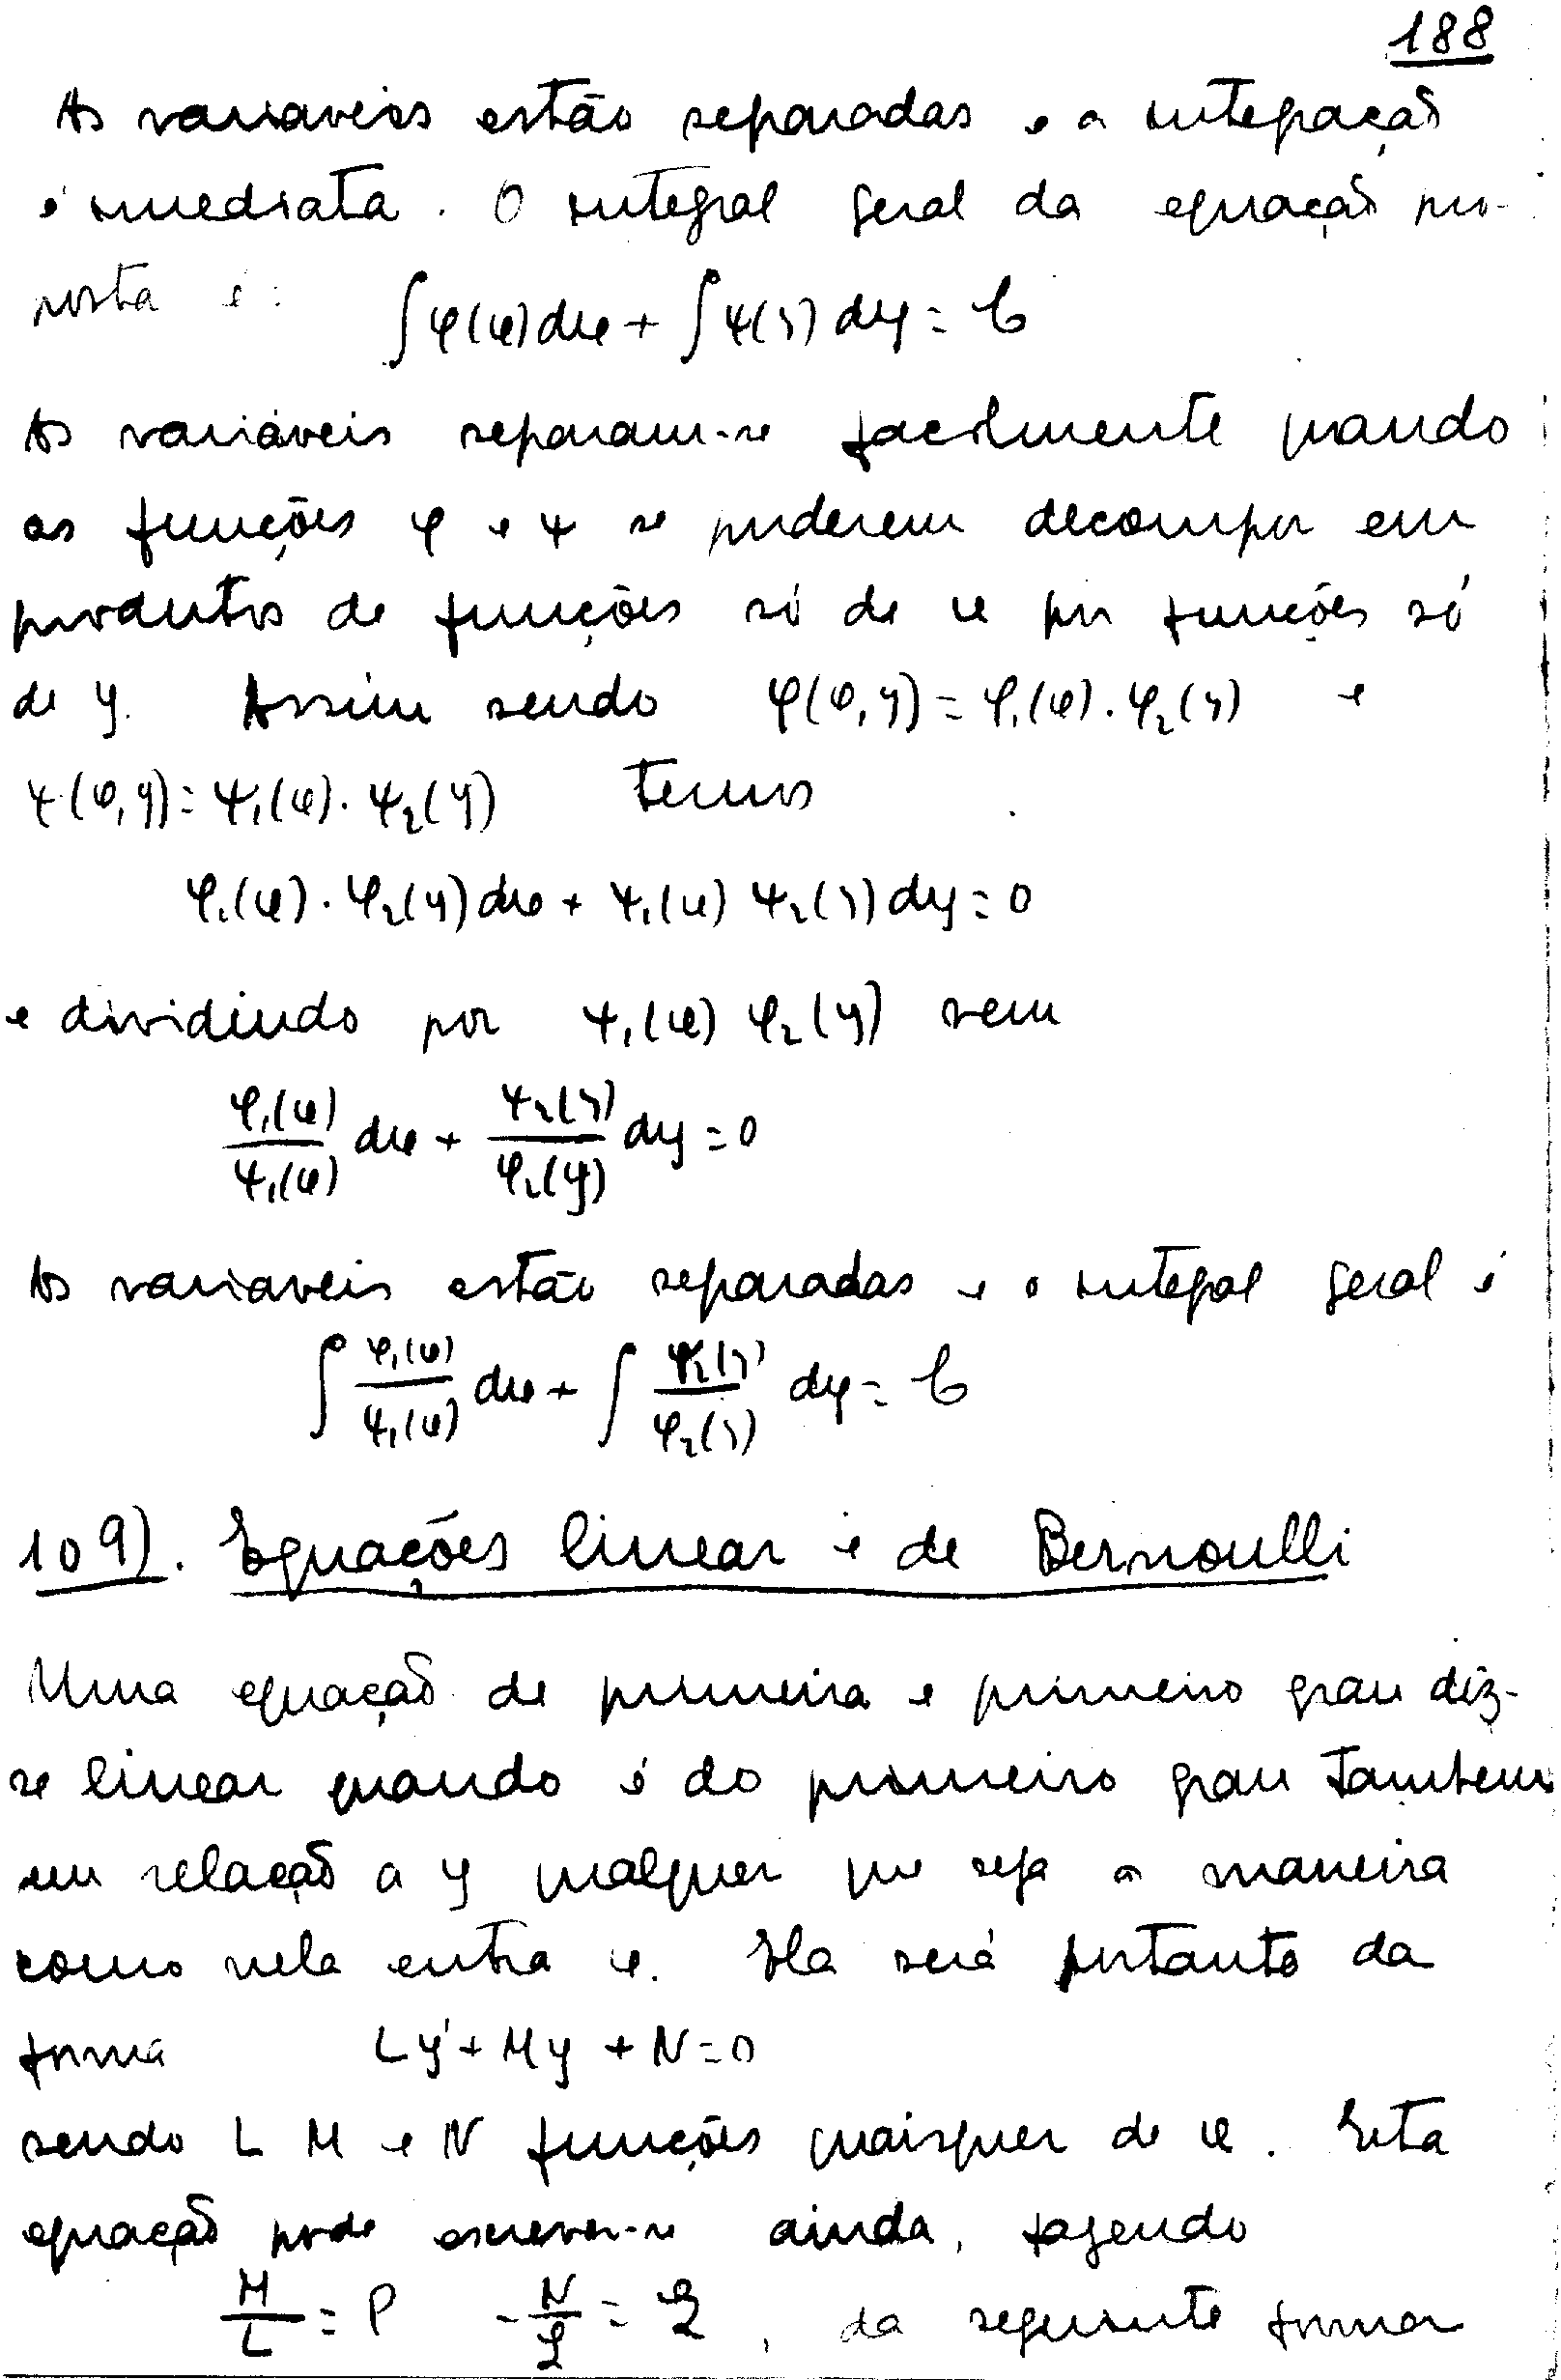 188
As variaveis estão separadas e a integração
é imediata. O integral geral da equação pro-
posta é: ∫φ(x)dx + ∫ψ(y)dy = C
As variáveis separam-se facilmente quando
as funções φ e ψ se puderem decompor em
produtos de funções só de x por funções só
de y. Assim sendo φ(x,y) = φ₁(x).φ₂(y) e
ψ(x,y) = ψ₁(x).ψ₂(y) temos
φ₁(x).φ₂(y)dx + ψ₁(x) ψ₂(y)dy = 0
e dividindo por ψ₁(x) φ₂(y) vem
φ₁(x)/ψ₁(x) dx + ψ₂(y)/φ₂(y) dy = 0
As variaveis estão separadas e o integral geral é
∫ φ₁(x)/ψ₁(x) dx + ∫ ψ₂(y)/φ₂(y) dy = C
109). Equações linear e de Bernoulli
Uma equação de primeira e primeiro grau diz-
se linear quando é do primeiro grau tambem
em relação a y qualquer que seja a maneira
como nela entra x. Ela será portanto da
forma Ly' + My + N = 0
sendo L M e N funções quaisquer de x. Esta
equação pode escrever-se ainda, fazendo
M/L = P -N/L = Q, da seguinte forma